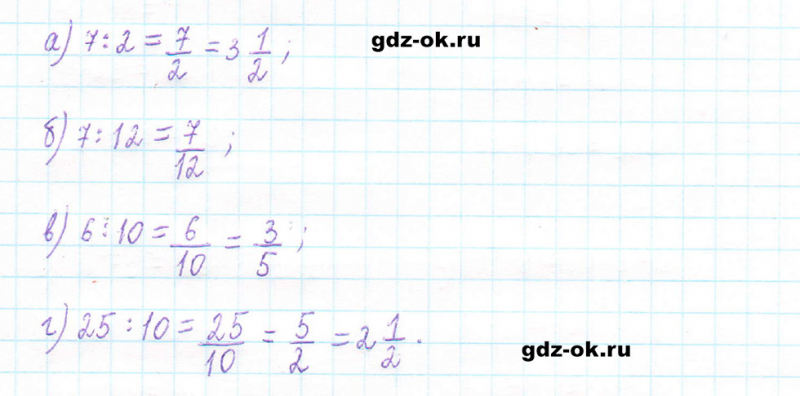 а) 7 : 2 = 7/2 = 3 1/2 ;
gdz-ok.ru
б) 7 : 12 = 7/12 ;
в) 6 : 10 = 6/10 = 3/5 ;
г) 25 : 10 = 25/10 = 5/2 = 2 1/2 .
gdz-ok.ru